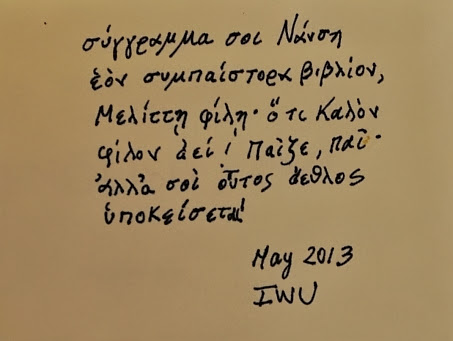 σύγγραμμα σοι Νάνση
ἑὸν συμπαίστορα βιβλίον,
Μελίττῃ φίλῃ· ὅτι Καλὸν
φίλον ἀεί! Παῖζε, παῖ·
ἀλλὰ σοὶ οὗτος ἄεθλος
ὑποκείσεται!
May 2013
IWU